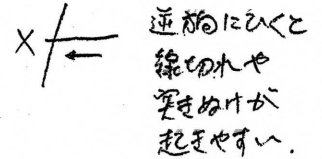 X
逆方向にひくと
線切れや
突きぬけが
起きやすい.